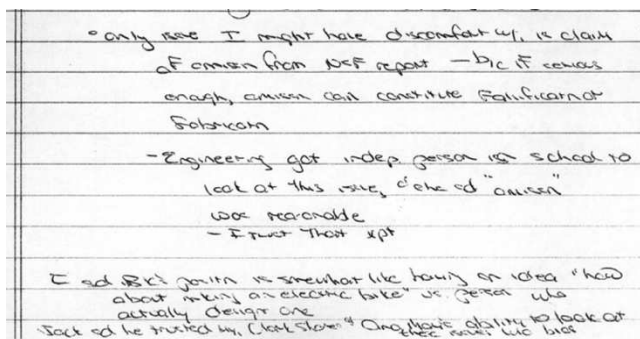 • only issue I might have discomfort w/. is claim
of omission from NSF report – b/c if serious
enough, omission can constitute Falsification or
Fabricatn
- Engineering got indep. person in school to
look at this issue, & she sd "omissn"
was reasonable
- I trust that xpt
I sd. BK's positn is somewhat like having an idea "how
about making an electric bike" vs. person who
actually design one
Jack sd he trusted ability to look at
these issues w/o bias